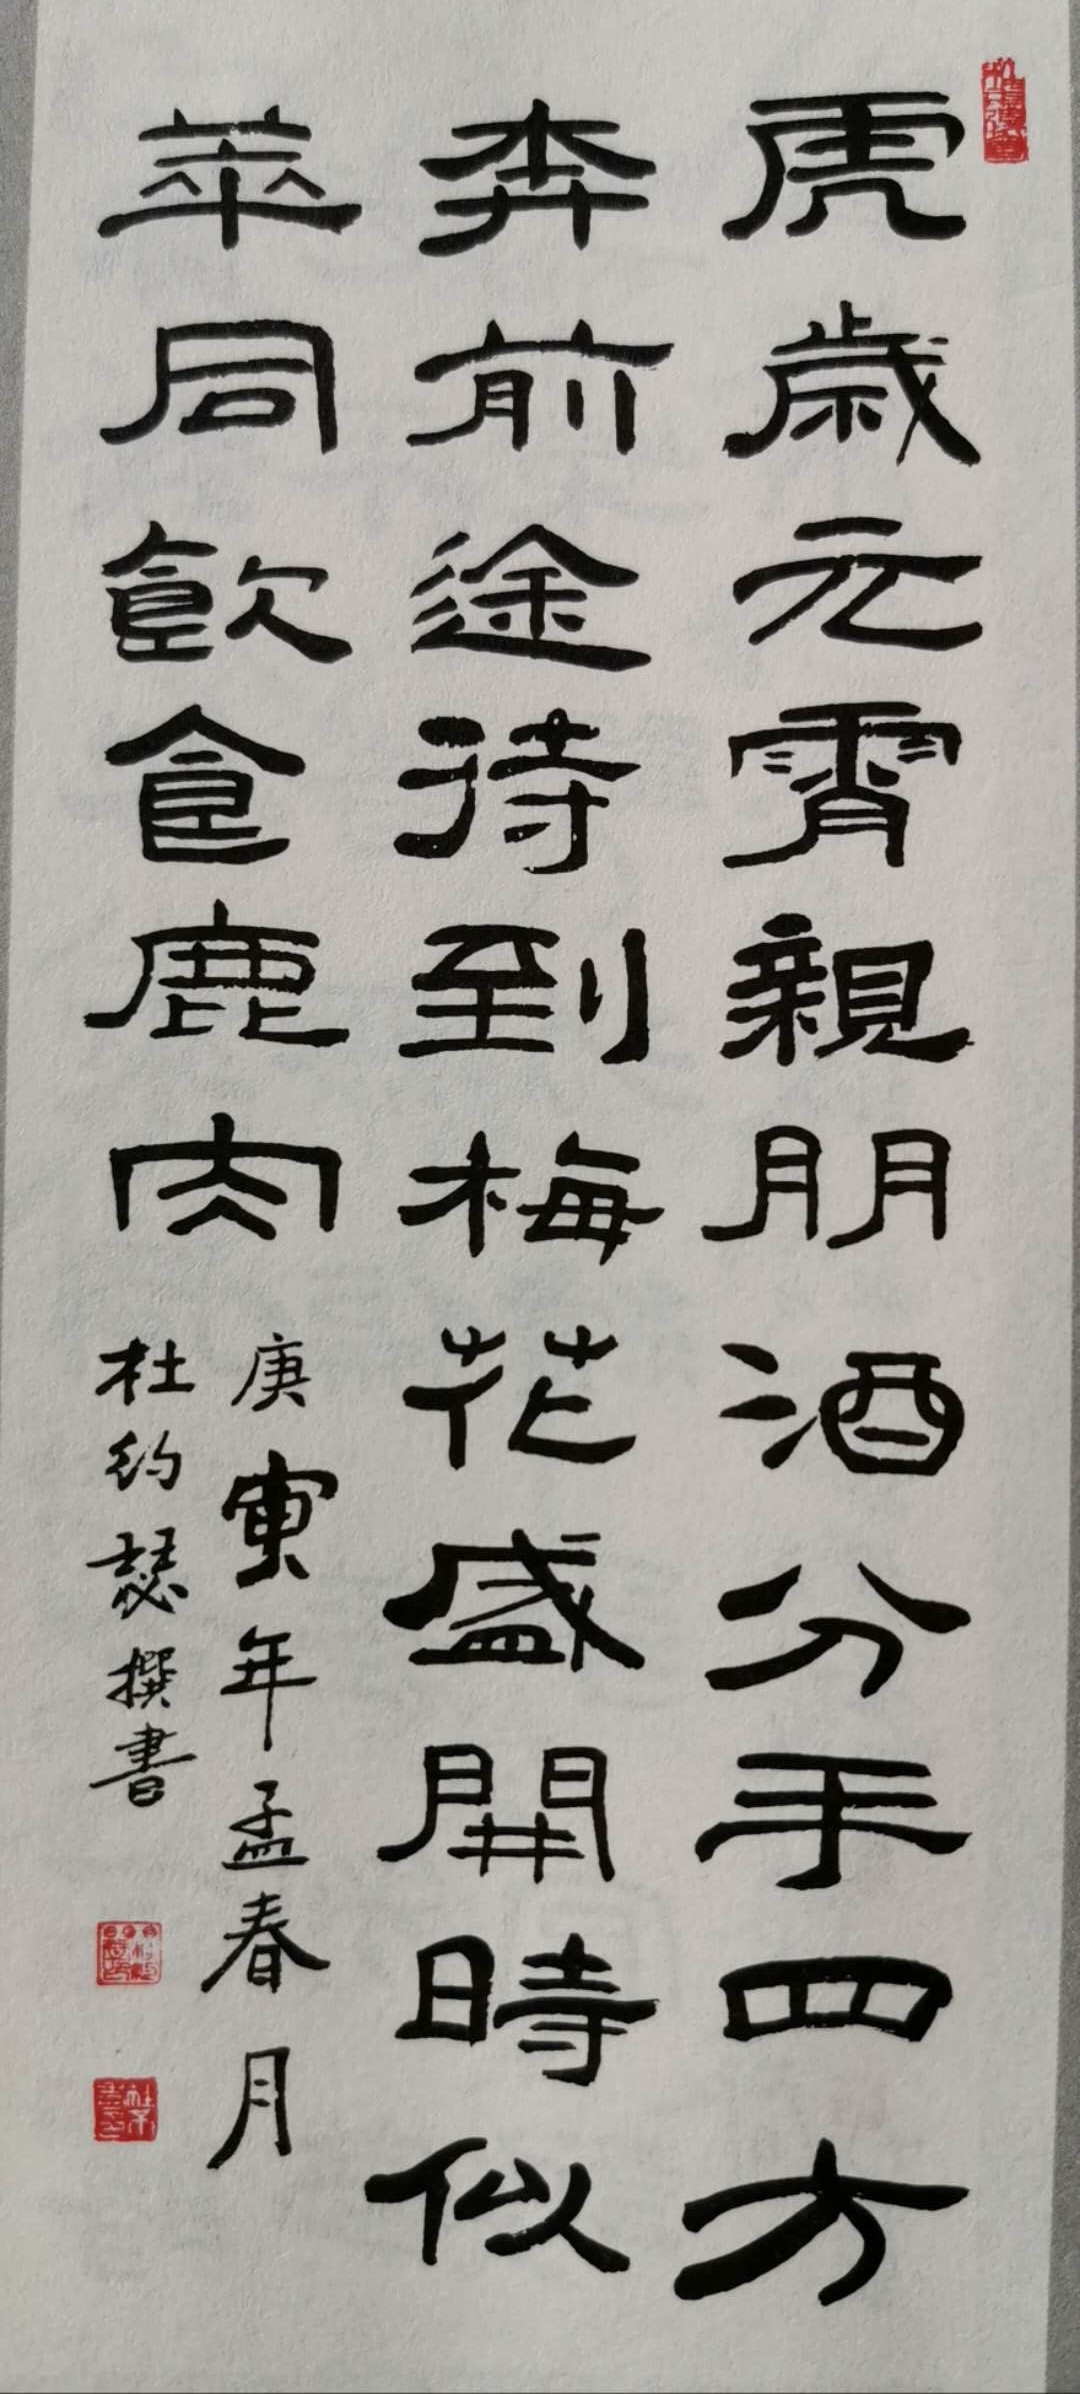 虎歲元宵親朋酒分手四方
奔前途待到梅花盛開時似
苹同飲食鹿肉
庚寅年孟春月
杜約瑟撰書